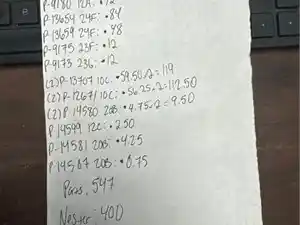 P-9180 12A: •12
P-13654 24F: •84
P-13659 24F: •78
P-9175 23F: •12
P-9173 23G: •12
(2) P-13707 10C: •59.50x2=119
(2) P-12671 10C: •56.25x2=112.50
(2) P 14580 20B: •4.75x2=9.50
P 14599 12C: •2.50
P-14581 20B: •4.25
P-14587 20B: •0.75
Parts: 547
Nester: 400